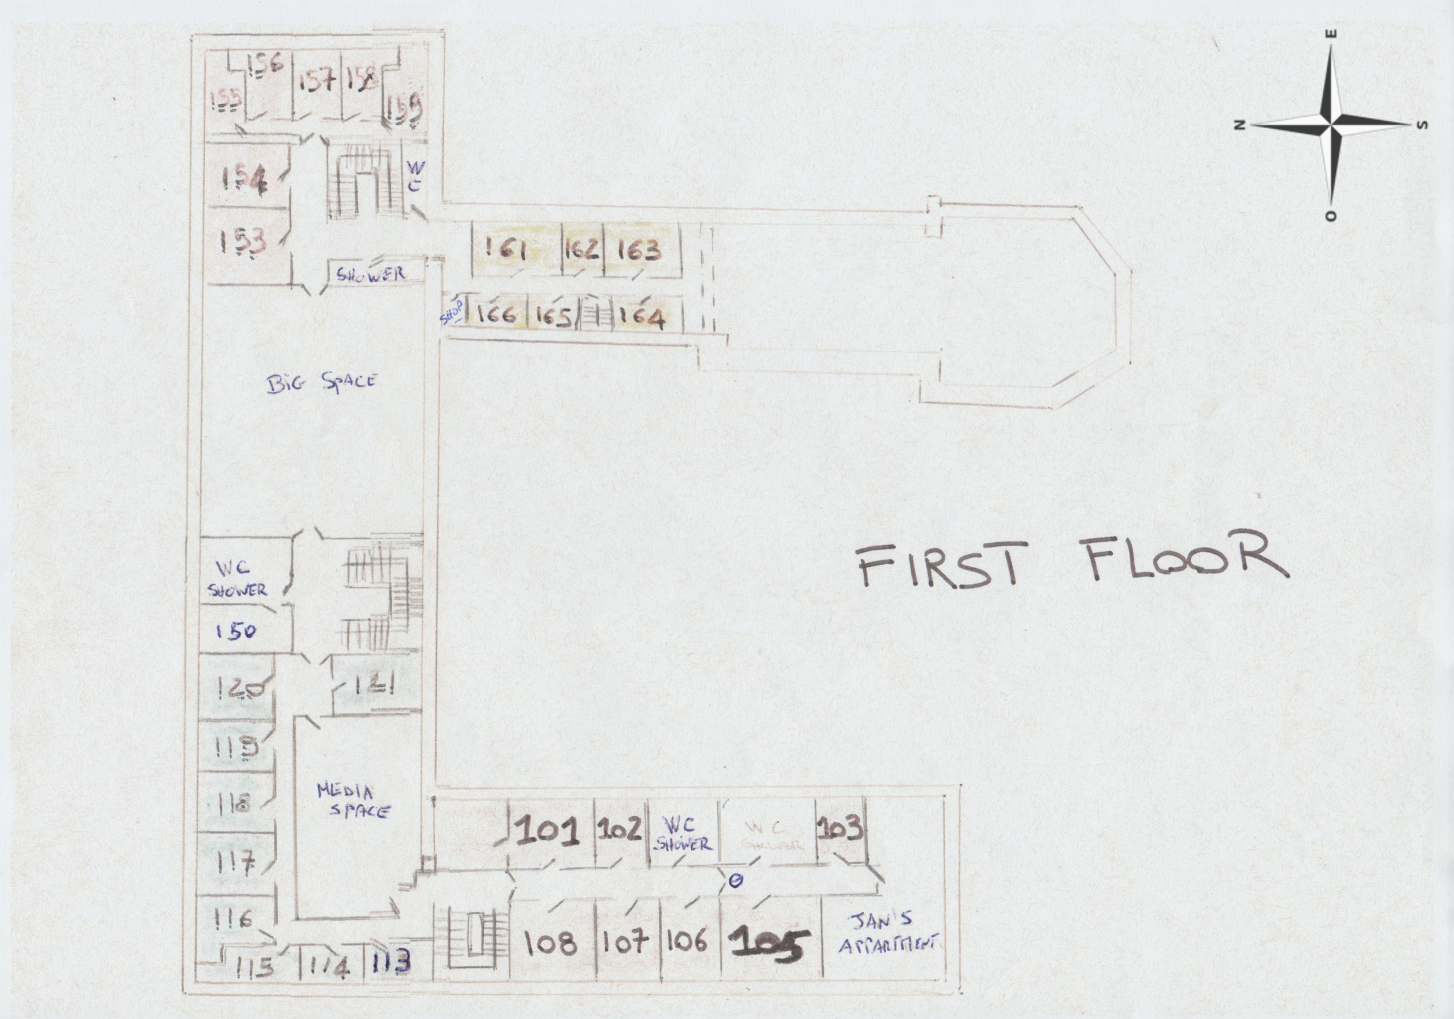 E
N
S
O
156
157
158
155
159
154
W
C
153
161
162
163
SHOWER
SHOP
166
165
164
BIG SPACE
FIRST FLOOR
WC
SHOWER
150
120
121
119
118
MEDIA
SPACE
117
116
115
114
113
101
102
WC
SHOWER
WC
SHOWER
103
108
107
106
105
JAN'S
APPARTMENT